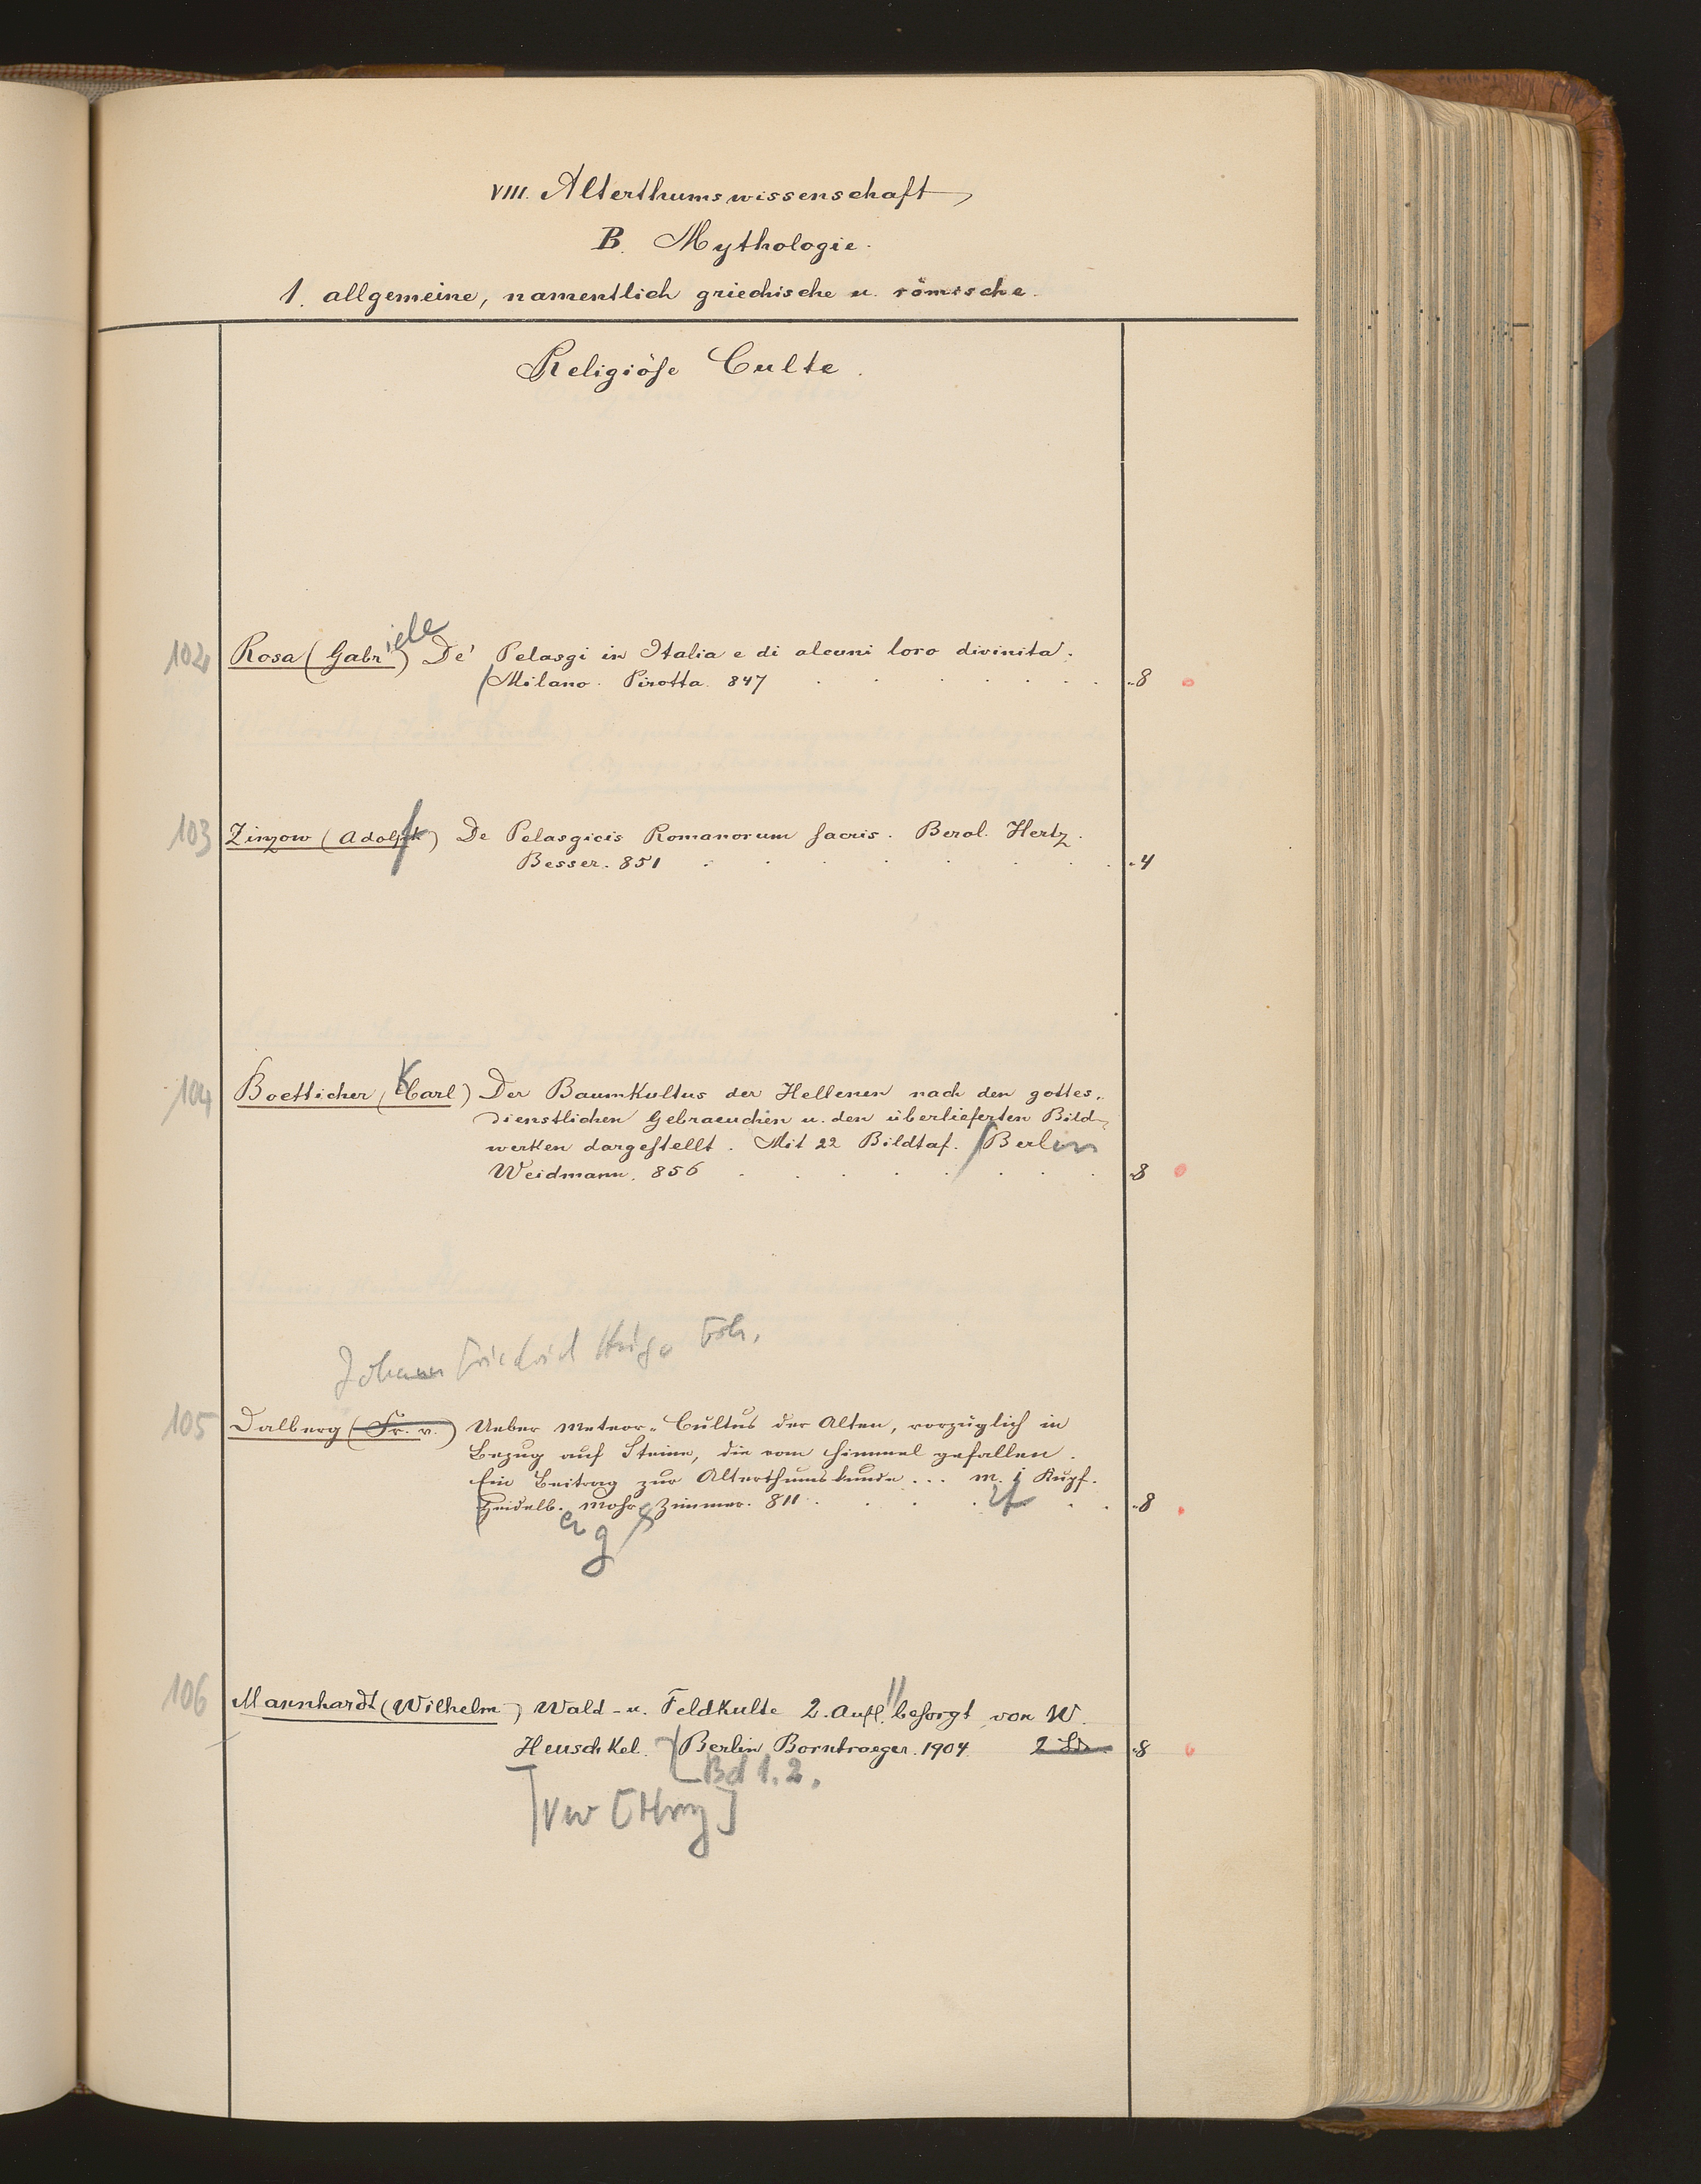 VIII. Alterthumswissenschaft
B. Mythologie.
1. allgemeine, namentlich griechische u. römische.
Religiöse Culte.
102 Rosa (Gabriele) De' Pelasgi in Italia e di alcuni loro divinita.
Milano. Pirotta. 847 . . . . . . . 8
103 Zinzow (Adolf) De Pelasgicis Romanorum sacris. Berol. Hertz.
Besser. 851 . . . . . . . 4
104 Boetticher (Karl) Der Baumkultus der Hellenen nach den gottes-
dienstlichen Gebraeuchen u. den überlieferten Bild-
werken dargestellt. Mit 22 Bildtaf. Berlin
Weidmann. 856 . . . . . . . 8
Johann Friedrich Hugo Frh.
105 Dalberg (Fr. v.) Ueber Meteor-Cultus der Alten, vorzüglich in
Bezug auf Steine, die vom Himmel gefallen.
Ein Beitrag zur Alterthumskunde ... m. 1 Kupf.
Heidelb. Mohr & Zimmer. 811 . . . . . . 8
erg
106 Mannhardt (Wilhelm) Wald- u. Feldkulte 2. Aufl. besorgt von W.
Heuschkel. Berlin Borntraeger. 1904. 2 Bde 8
Bd 1. 2.